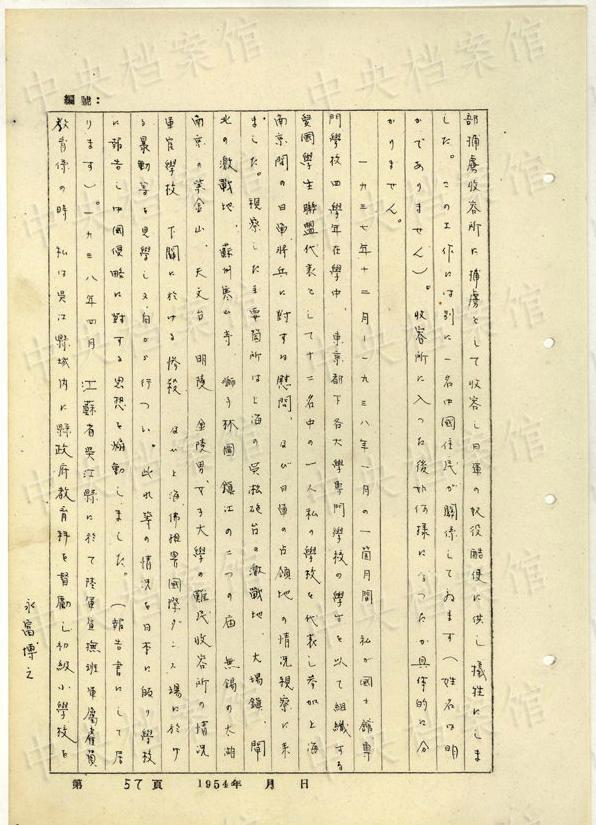 編號:
部捕虜收容所に捕虜として收容し日軍の奴役酷使に供し犠牲にしま
した。この工作には別に一名中國住民が關係しております(姓名は明
かでありません)。收容所に入つた後如何樣になつたか具体的に分
かりません。
一九三七年十二月—一九三八年一月の一箇月間 私が國士館專
門學校四學年在學中、東京都下各大學專門學校の學生を以て組織する
愛國學生聯盟代表として十二名中の一人私の學校を代表し參加上海
南京間の日軍將兵に對する慰問、及び日軍の占領地の情況視察に來
ました。視察した主要箇所は上海の吳淞砲台の激戰地、大場鎮、閘
北の激戰地、蘇州寒山寺 獅子林園鎮江の二つの廟 無錫の大湖
南京の紫金山、天文台 明陵 金陵男女子大學の難民收容所の情況
軍官學校 下關に於ける慘殺 及び上海佛租界國際ダンス場に於け
る暴動等を見學し又自から行つた。此れ等の情況を日本に歸り學校
に報告し中國侵略に對する思想を煽動しました。(報告書にして居
ります)。一九三八年四月 江蘇省吳江縣に於て陸軍宣撫班軍屬雇員
教育係の時 私は吳江縣城內に縣政府教育科を督勵し初級小學校を
永富博之
第 57頁 1954年 月 日
中央档案馆